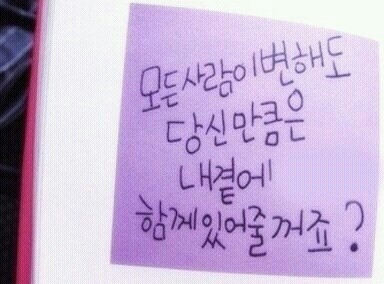 모든사람이변해도
당신만큼은
내곁에
함께있어줄꺼죠?